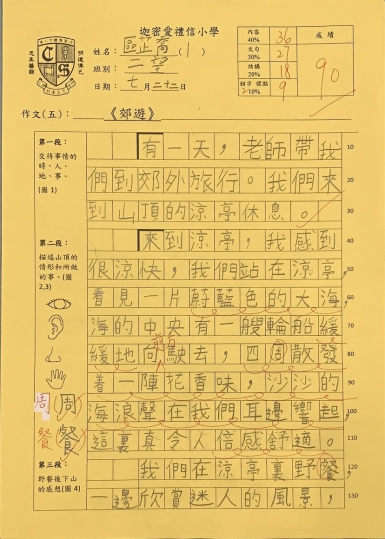 迦密愛禮信小學
姓名：區芷喬（1）
班別：二望
日期：七月二十二日
內容 40% 36
文句 30% 27
結構 20% 18
錯字 標點 10% 9
成績
90
作文(五)：《郊遊》
第一段：
交待事情的時、人、地、事。
(圖1)
第二段：
描述山頂的情形和所做的事。(圖2,3)
周 周
餐 餐
第三段：
野餐後下山的感想(圖4)
有一天，老師帶我 10
們到郊外旅行。我們來 20
到山頂的涼亭休息。 30
來到涼亭，我感到 40
很涼快，我們站在涼亭， 50
看見一片蔚藍色的大海， 60
海的中央有一艘輪船緩 70
緩地向前駛去，四周散發 80
着一陣花香味，沙沙的 90
海浪聲在我們耳邊響起， 100
這裏真令人倍感舒適。 110
我們在涼亭裏野餐， 120
一邊欣賞迷人的風景， 130